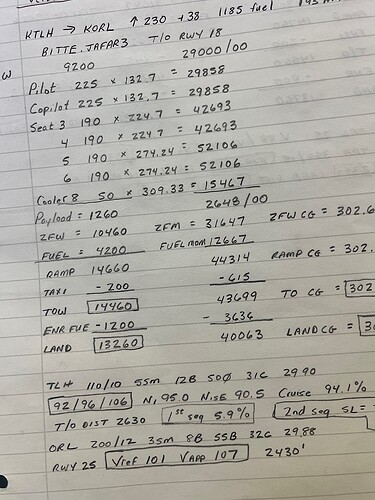 KTLH → KORL ↑ 230 +38 1185 fuel
BITTE.JAFAR3 T/O RWY 18
W 9200 29000/00
Pilot 225 x 132.7 = 29858
Copilot 225 x 132.7 = 29858
Seat 3 190 x 224.7 = 42693
4 190 x 224.7 = 42693
5 190 x 274.24 = 52106
6 190 x 274.24 = 52106
Cooler 8 50 x 309.33 = 15467
Payload = 1260 2648/00
ZFW = 10460 ZFM = 31647 ZFW CG = 302.6
FUEL = 4200 FUEL mom 12667
RAMP 14660 44314 RAMP CG = 302.
TAXI - 200 - 615
TOW 14460 43699 TO CG = 302
ENR FUE - 1200 - 3636
LAND 13260 40063 LAND CG = 30
TLH 110/10 5sm 12B 50Ø 31C 29.90
92/96/106 N1 95.0 N1SE 90.5 Cruise 94.1%
T/O DIST 2630 1st seg 5.9% 2nd seg SL =
ORL 200/12 3sm 8B 55B 32C 29.88
RWY 25 Vref 101 VAPP 107 2430'